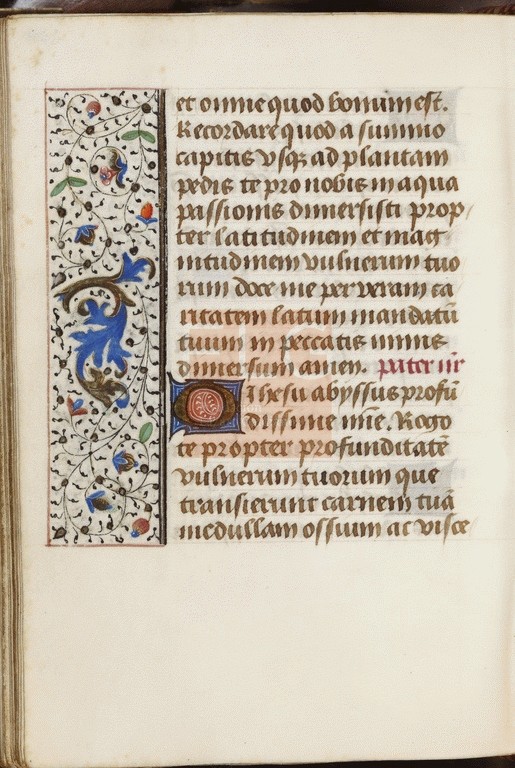 et omne quod bonum est.
Recordare quod a summo
capitis vsqꝫ ad plantam
pedis te pro nobis in aqua
passionis dimersisti prop/
ter latitudinem et mag
nitudinem vulnerum tuo
rum doce me per veram ca
ritatem latum mandatū
tuum in peccatis nimis
dimersum amen. pater nr̄
O ihesu abyssus profū
dissime mīe. Rogo
te propter profunditatē
vulnerum tuorum que
transierunt carnem tuā
medullam ossium ac visce/